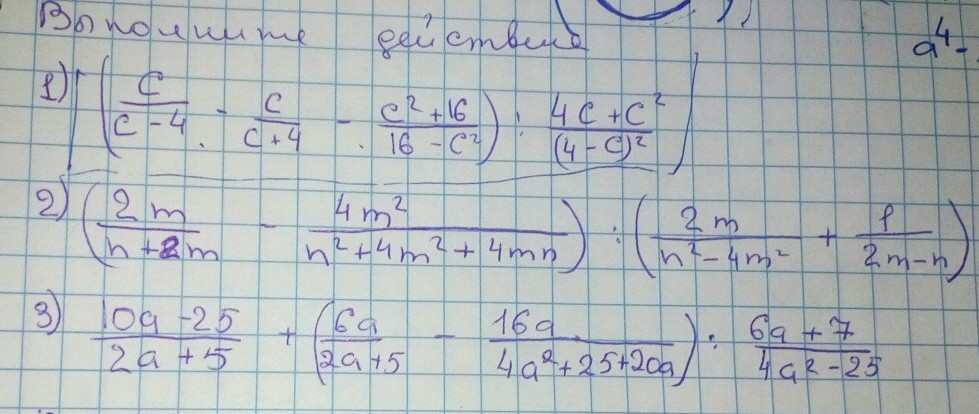 Выполните действия
a⁴-
1) (c/(c-4) - c/(c+4) - (c²+16)/(16-c²)) : (4c+c²)/(4-c)²
2) (2m/(n+2m) - 4m²/(n²+4m²+4mn)) : (2m/(n²-4m²) + 1/(2m-n))
3) (10a-25)/(2a+5) + (6a/(2a+5) - 16a/(4a²+25+20a)) : (6a+7)/(4a²-25)